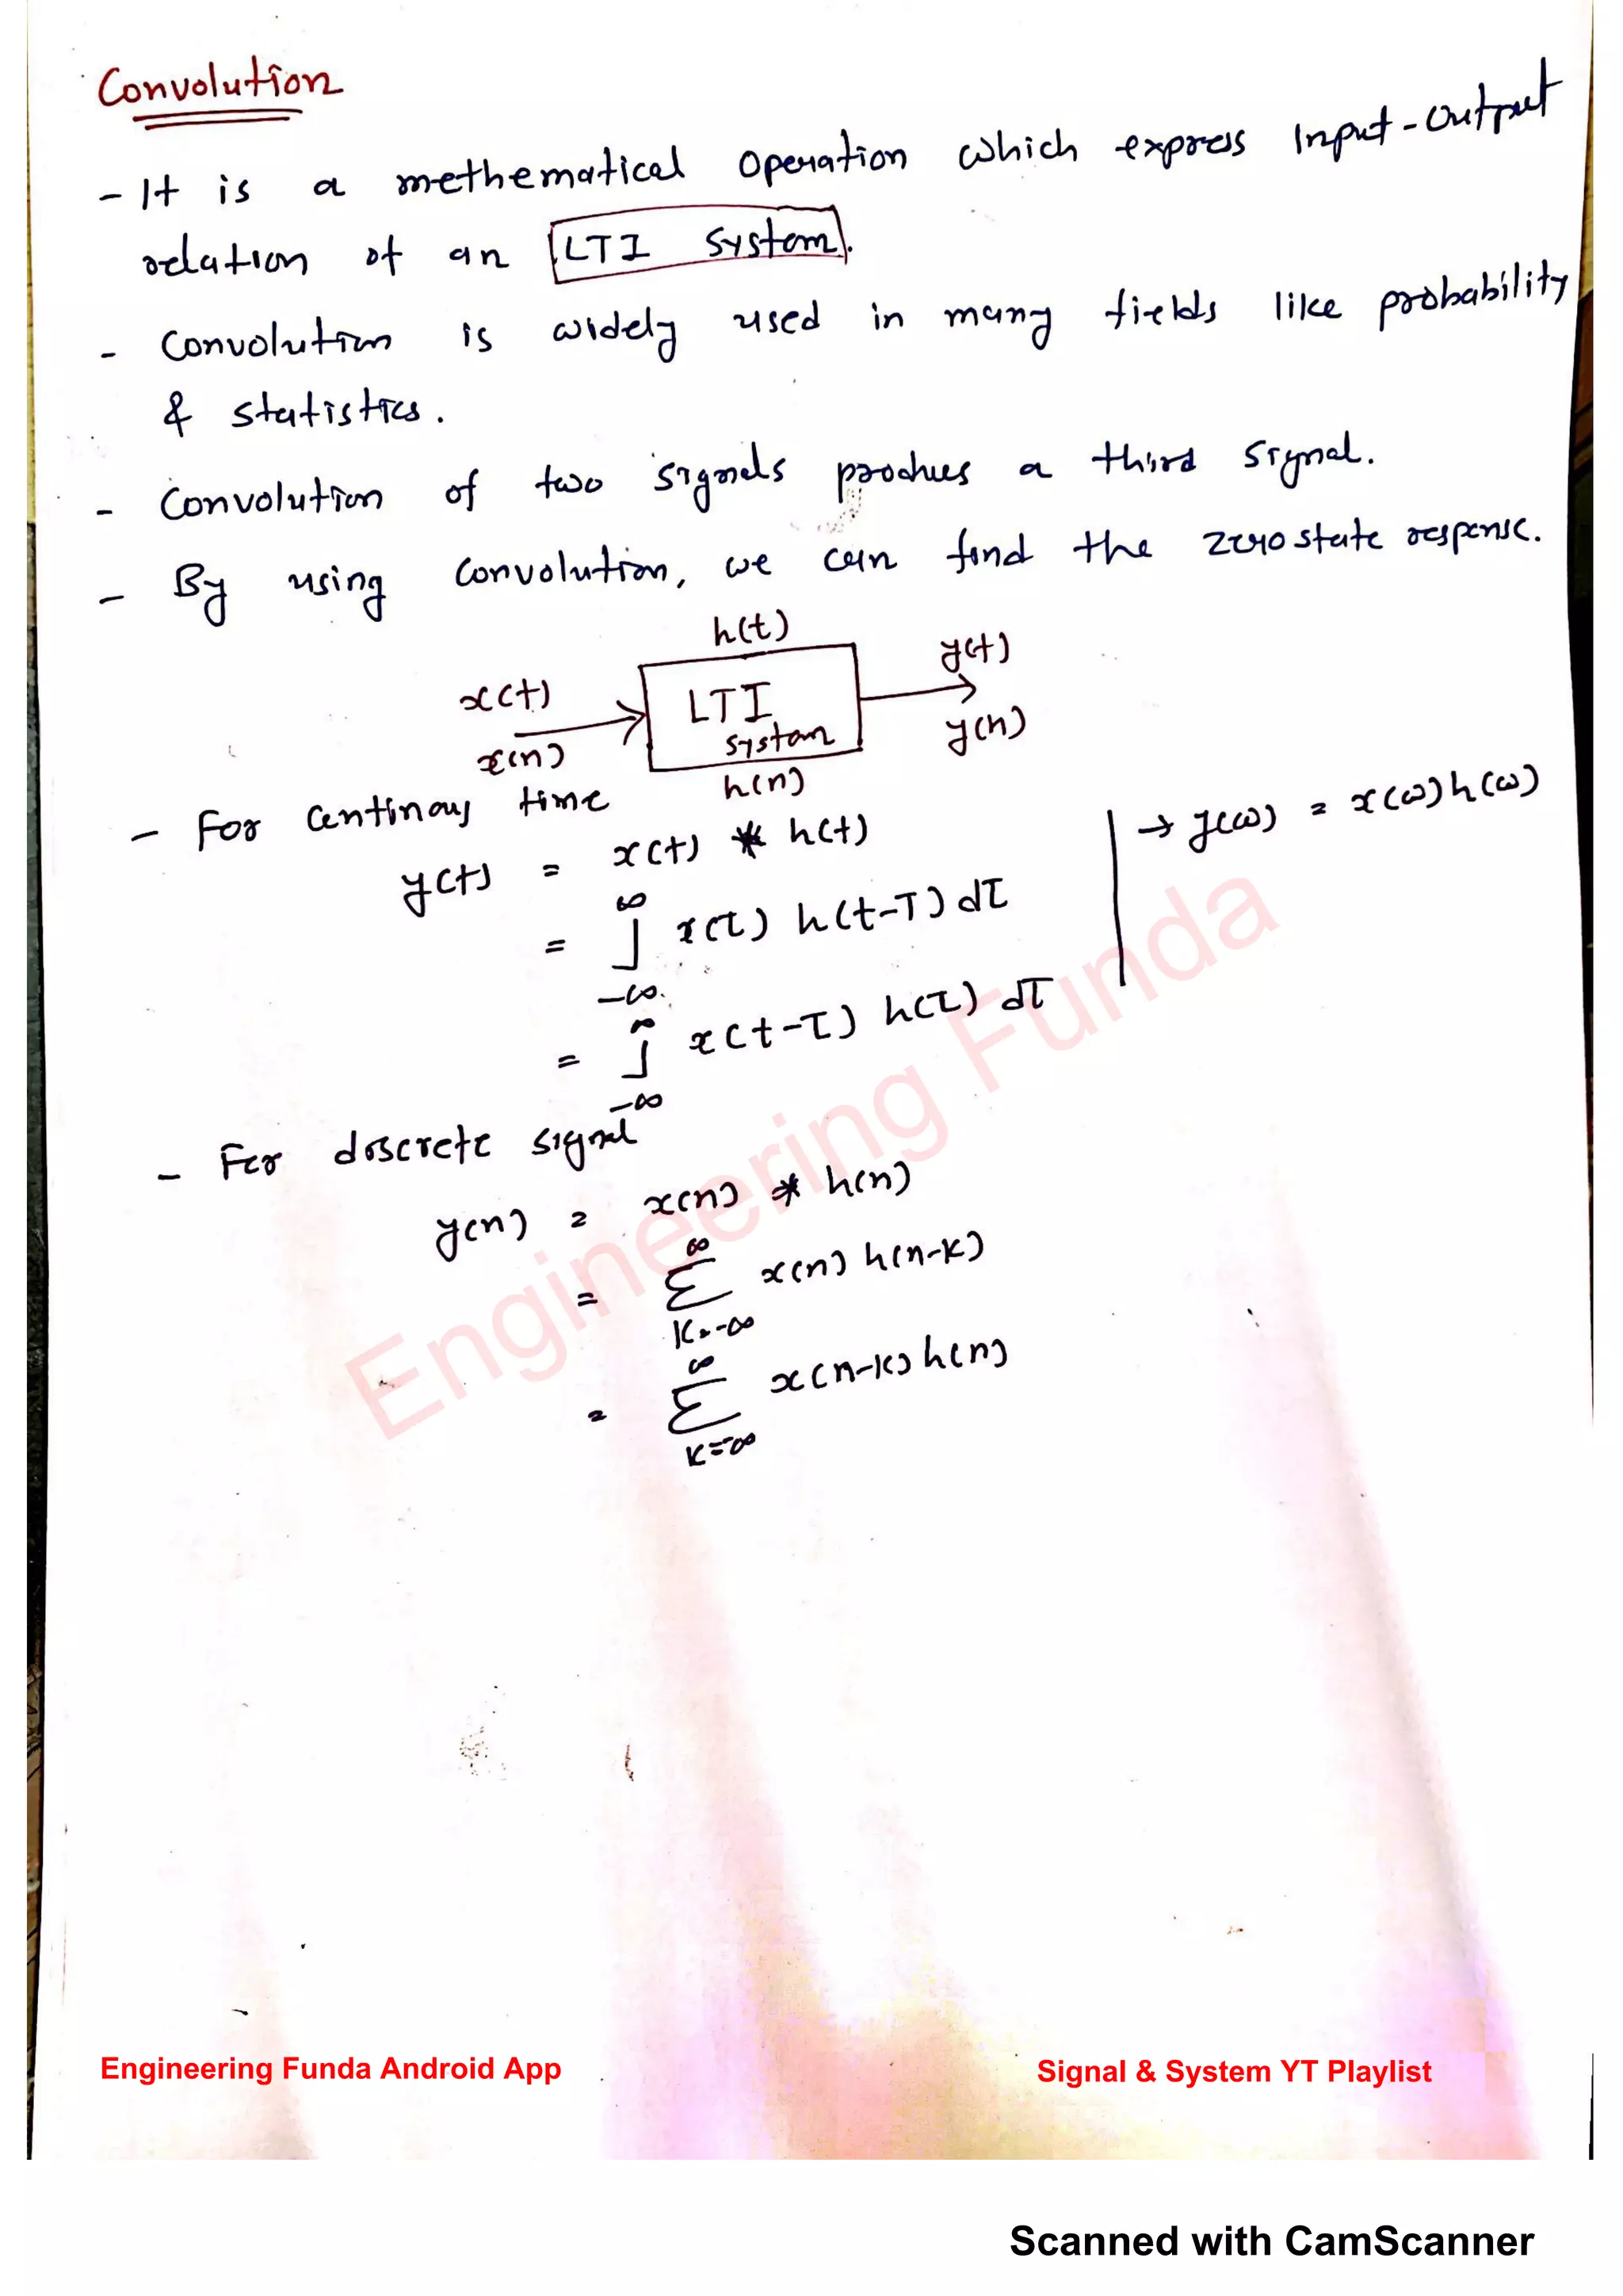 Convolution
- It is a methematical operation which express Input-Output
relation of an LTI System.
- Convolution is widely used in many fields like probability
& statistics.
- Convolution of two signals produes a third signal.
- By using convolution, we can find the zero state response.
h(t)
x(t) y(t)
LTI
system
x(n) y(n)
h(n)
- For continous time
y(t) = x(t) * h(t) → y(ω) = x(ω) h(ω)
= ∫_{-∞}^{∞} x(τ) h(t-τ) dτ
= ∫_{-∞}^{∞} x(t-τ) h(τ) dτ
- For discrete signal
y(n) = x(n) * h(n)
= ∑_{k=-∞}^{∞} x(n) h(n-k)
= ∑_{k=-∞}^{∞} x(n-k) h(n)
Engineering Funda
Engineering Funda Android App Signal & System YT Playlist
Scanned with CamScanner